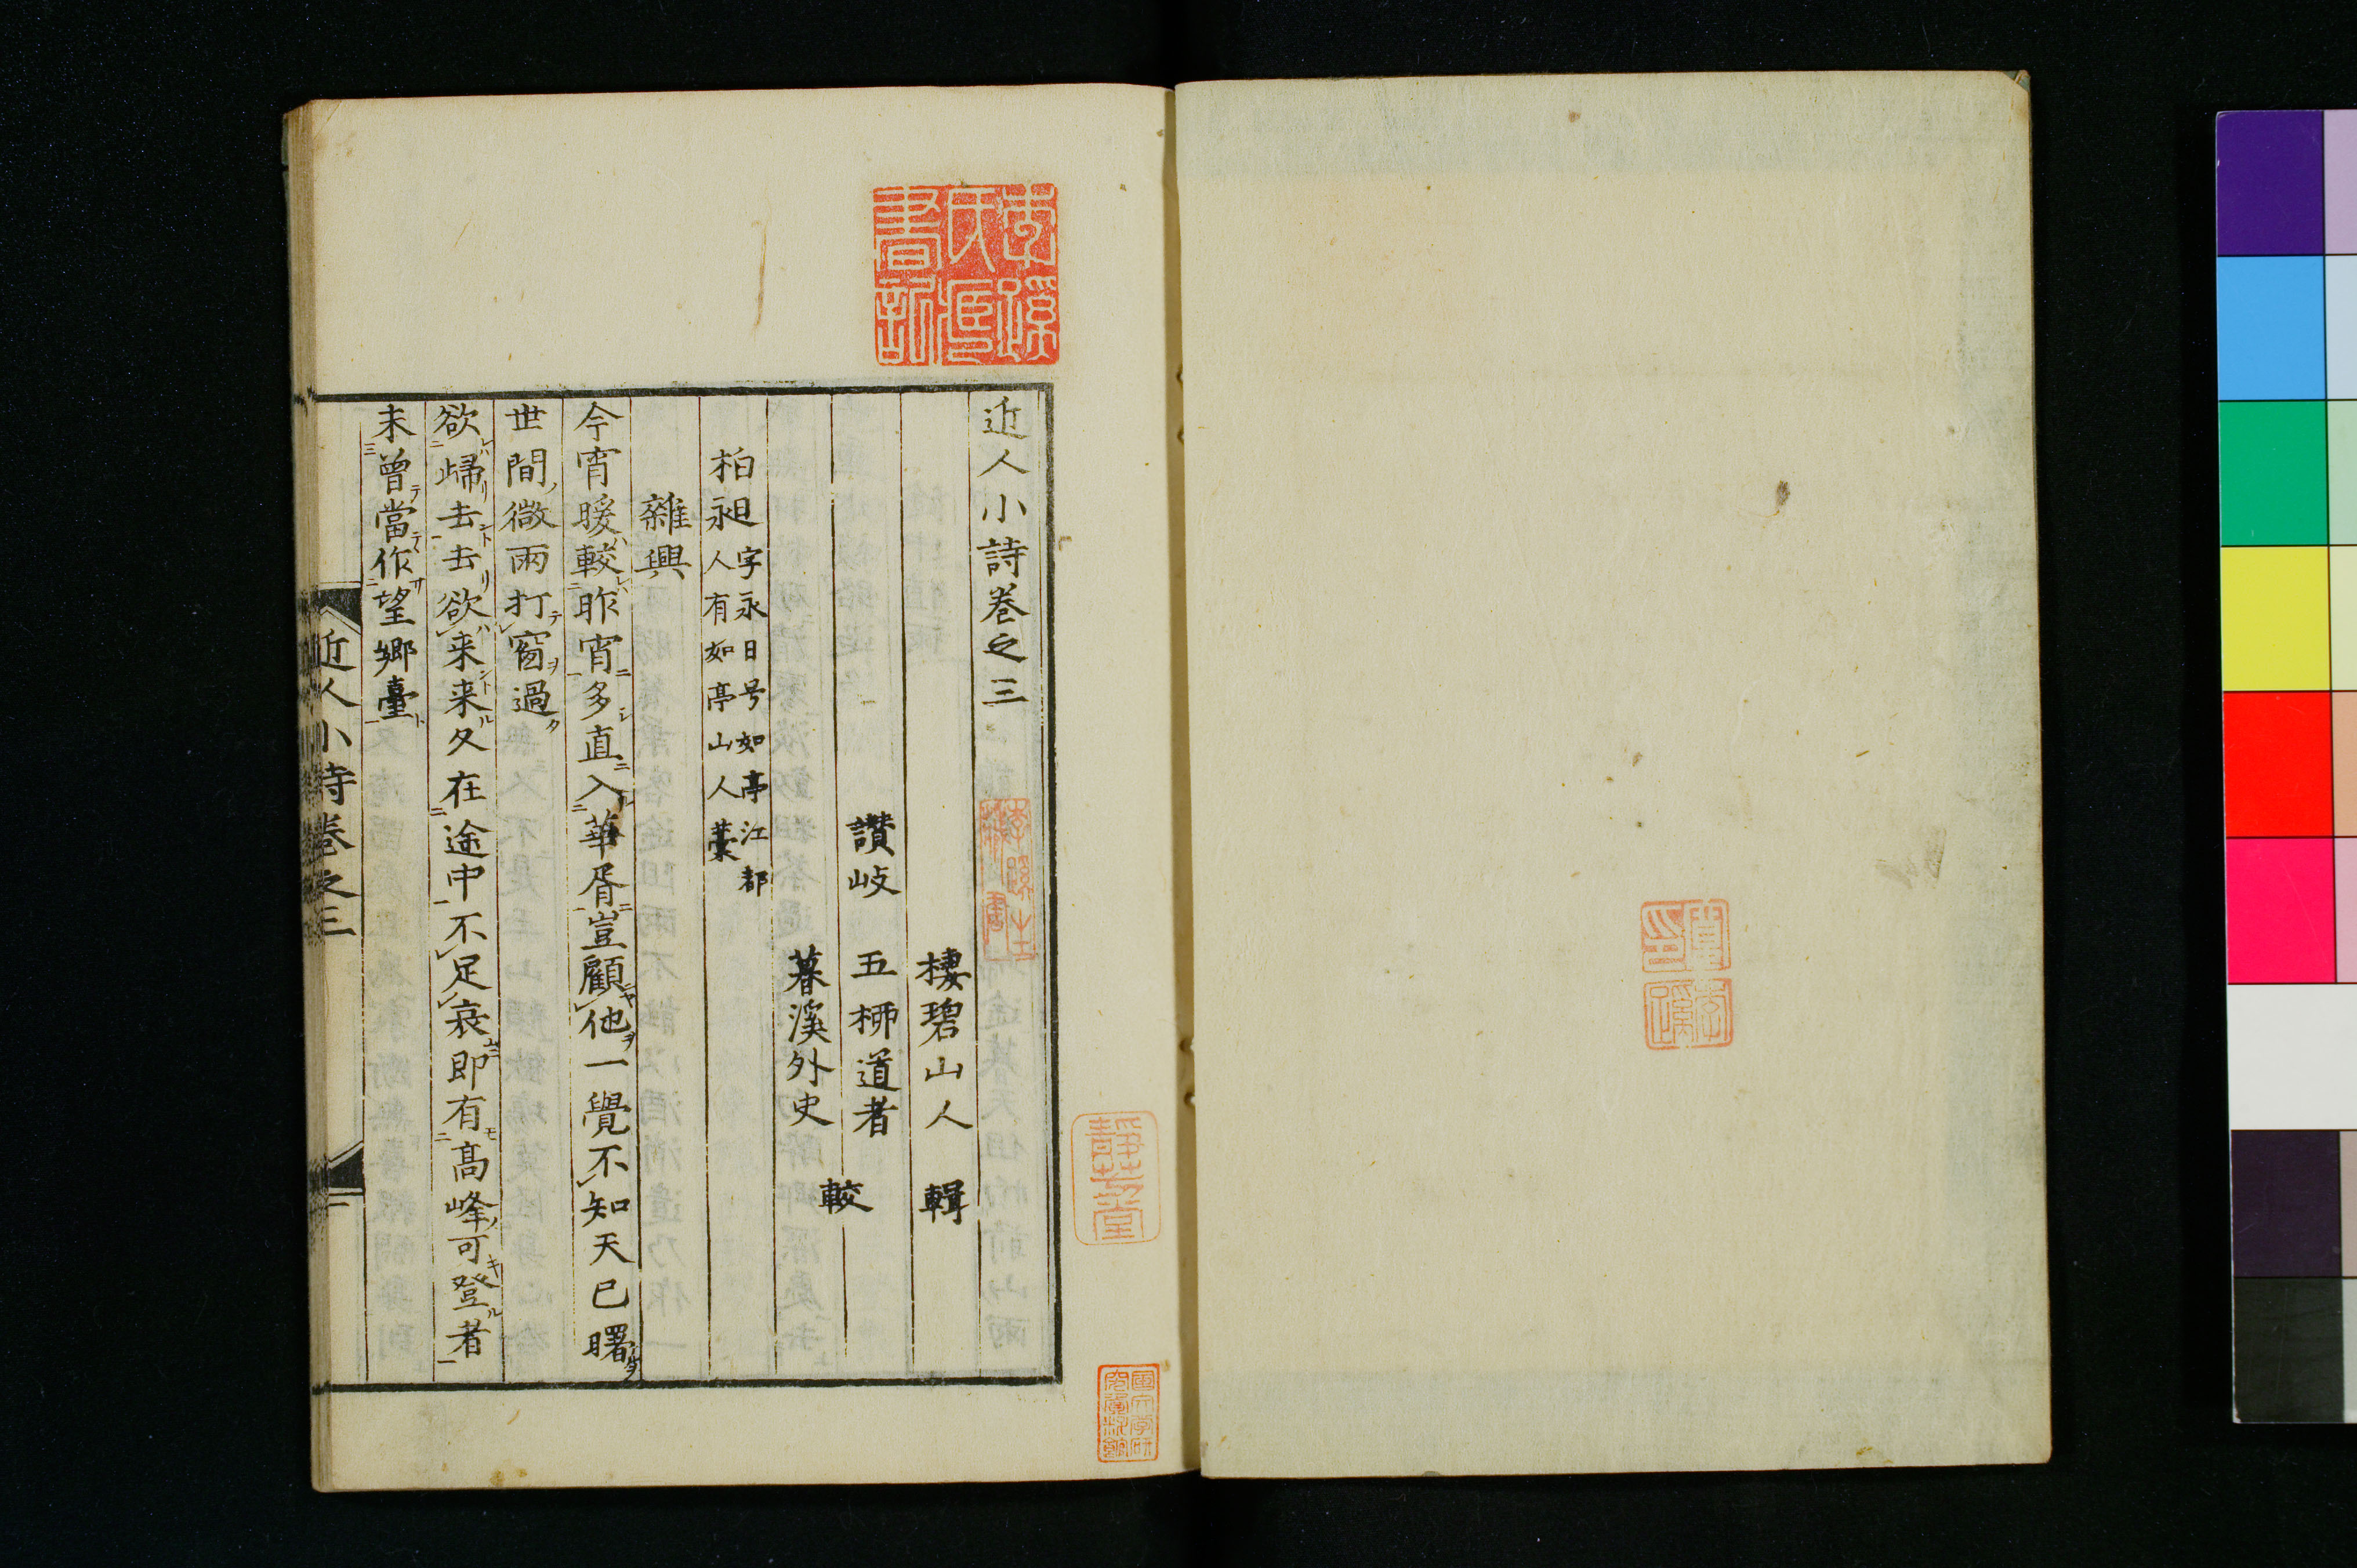 近人小詩巻之三
棲碧山人　輯
讃岐　五栁道者
暮溪外史
較
柏昶
字永日号如亭江都
人有如亭山人藁
雜興
今宵暖較昨宵多直入華胥豈顧他一覺不知天已曙
世間微雨打窗過
欲歸去去欲来来久在途中不足哀即有髙峰可登者
未曾當作望郷臺
近人小詩巻之三
一
靜堂